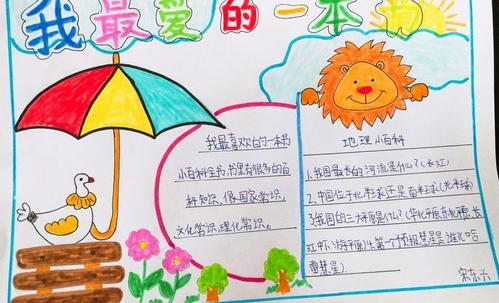 我最爱的一本书
我最喜欢的一本书
小百科全书,书里有很多的百
科知识,像国家常识,
文化常识,理化常识。
地理小百科
1.我国最长的河流是什么?(长江)
2.中国位于北半球还是南半球?(北半球)
3.我国的三大平原是什么?(华北平原
江中下游平原)4.第一个预报彗星是谁?(哈
雷彗星)
宋东兴